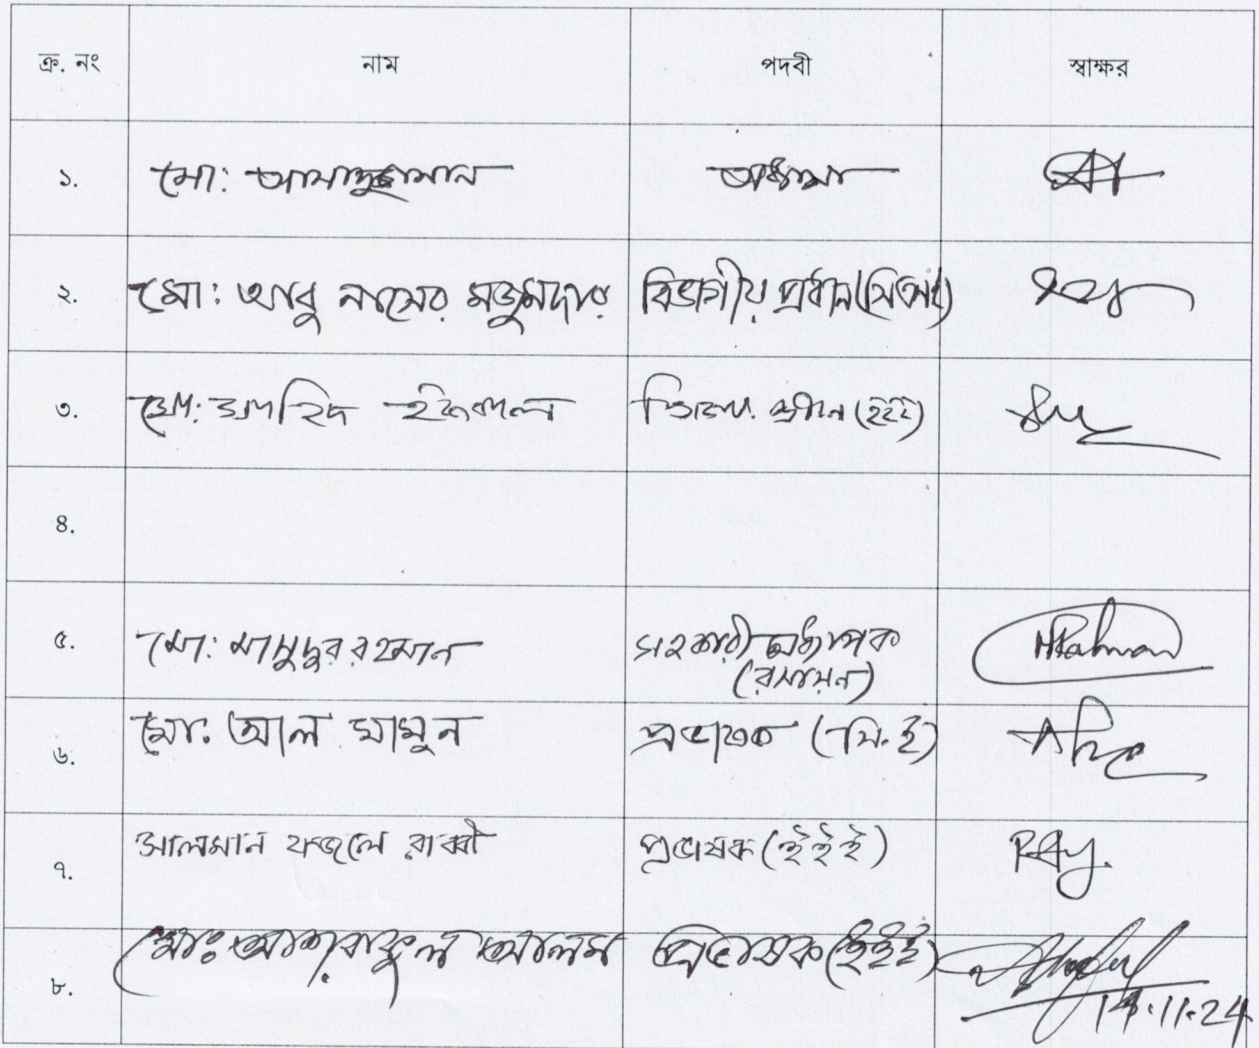 ক্র. নং নাম পদবী স্বাক্ষর
১. মো: আসাদুজ্জামান অধ্যক্ষ
২. মো: আবু নাসের মজুমদার বিভাগীয় প্রধান (সিএসই)
৩. মো: জাহিদ ইকবাল বিভা. প্রধান (ইইই)
৪.
৫. মো: মাসুদুর রহমান সহকারী অধ্যাপক MRahman
(রসায়ন)
৬. মো: আল মামুন প্রভাষক (সি.ই)
৭. সালমান ফজলে রাব্বী প্রভাষক (ইইই)
৮. মোঃ আশরাফুল আলম প্রভাষক (ইইই)
14.11.24